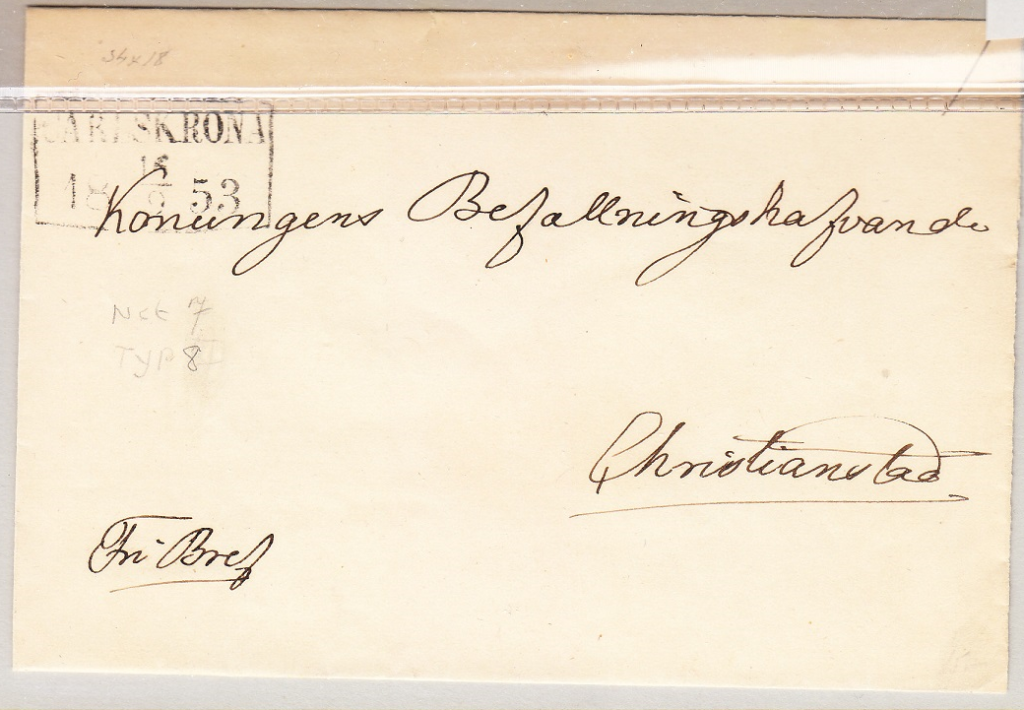 34x18
CARLSKRONA
15
18 53
Konungens Befallningshafvande
Nck 7
Typ 8
Christianstad
Fri Bref